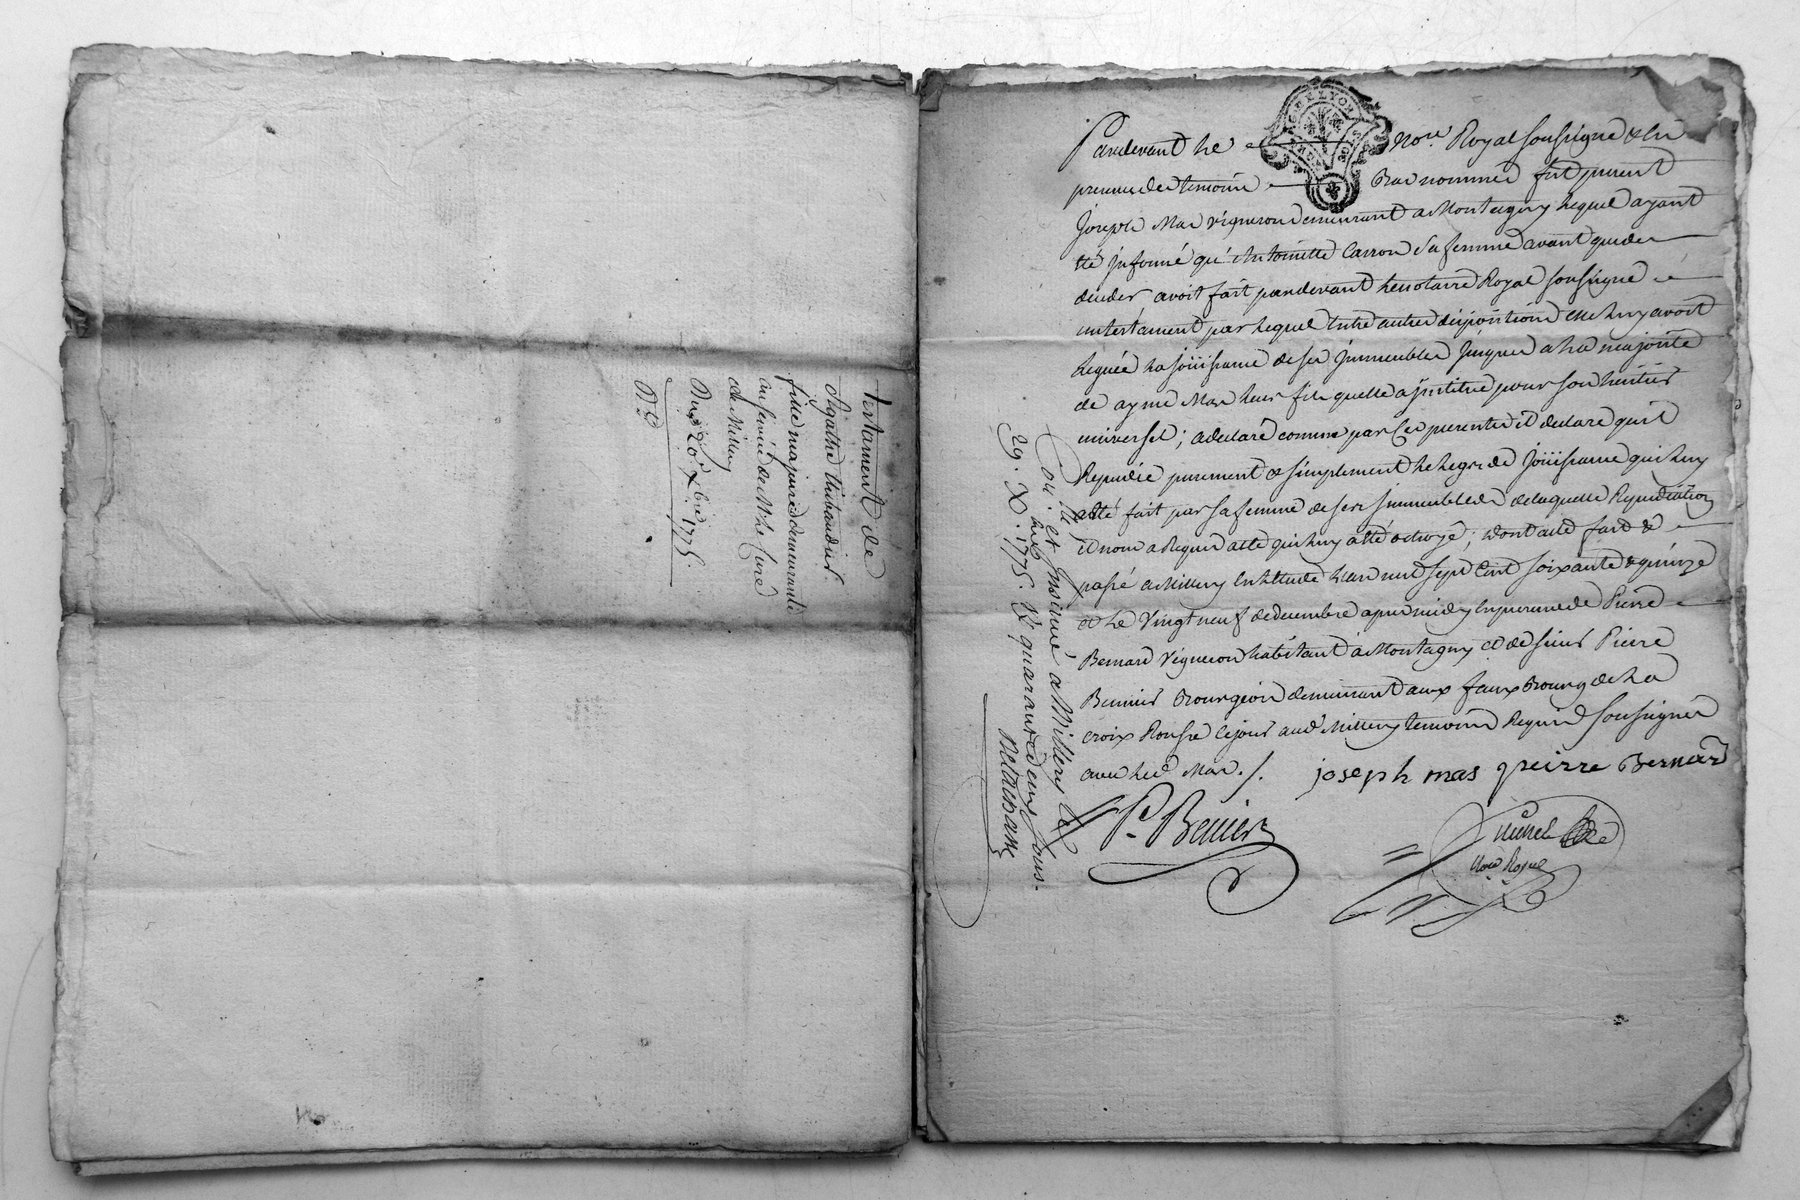 Testament de
Agathe thibaudier
fille majeure demeurante
au service de Mr le Curé
de Millery
Du 20 Xbre 1775.
Pardevant le Nore. Royal soussigné & en
presence des temoins Bas nommés fut present
Joseph Mas vigneron demeurant a Montagny lequel ayant
été informé qu'Antoinette Carron sa femme avant que de
deceder avoit fait pardevant le notaire Royal soussigné
un testament par lequel entre autres dispositions elle luy avoit
legué la joüissance de ses immeubles jusques a la majorité
de aymé Mas leur fils quelle a institué pour son heritier
universel; a declaré comme par ces presentes il declare qu'il
Repudie purement & simplement le legs de Joüissance qui luy
a été fait par sa femme de ses immeubles de laquelle Repudiation
il nous a Requis acte qui luy a été octroyé; dont acte fait &
passé a Millery en Etude l'an mil sept cent soixante & quinze
et le vingt neuf decembre apres midy en presence de Pierre
Bernard vigneron habitant à Montagny et de sieur Pierre
Bernier Bourgeois demeurant aux fauxbourg de la
croix Rousse ce jour aud Millery temoins Requis soussignés
avec led. Mas ./. joseph mas pierre Bernard
P. Bernier
Nore Royal
et Insinué a Millery le
29. X. 1775. R quarante deux sous.